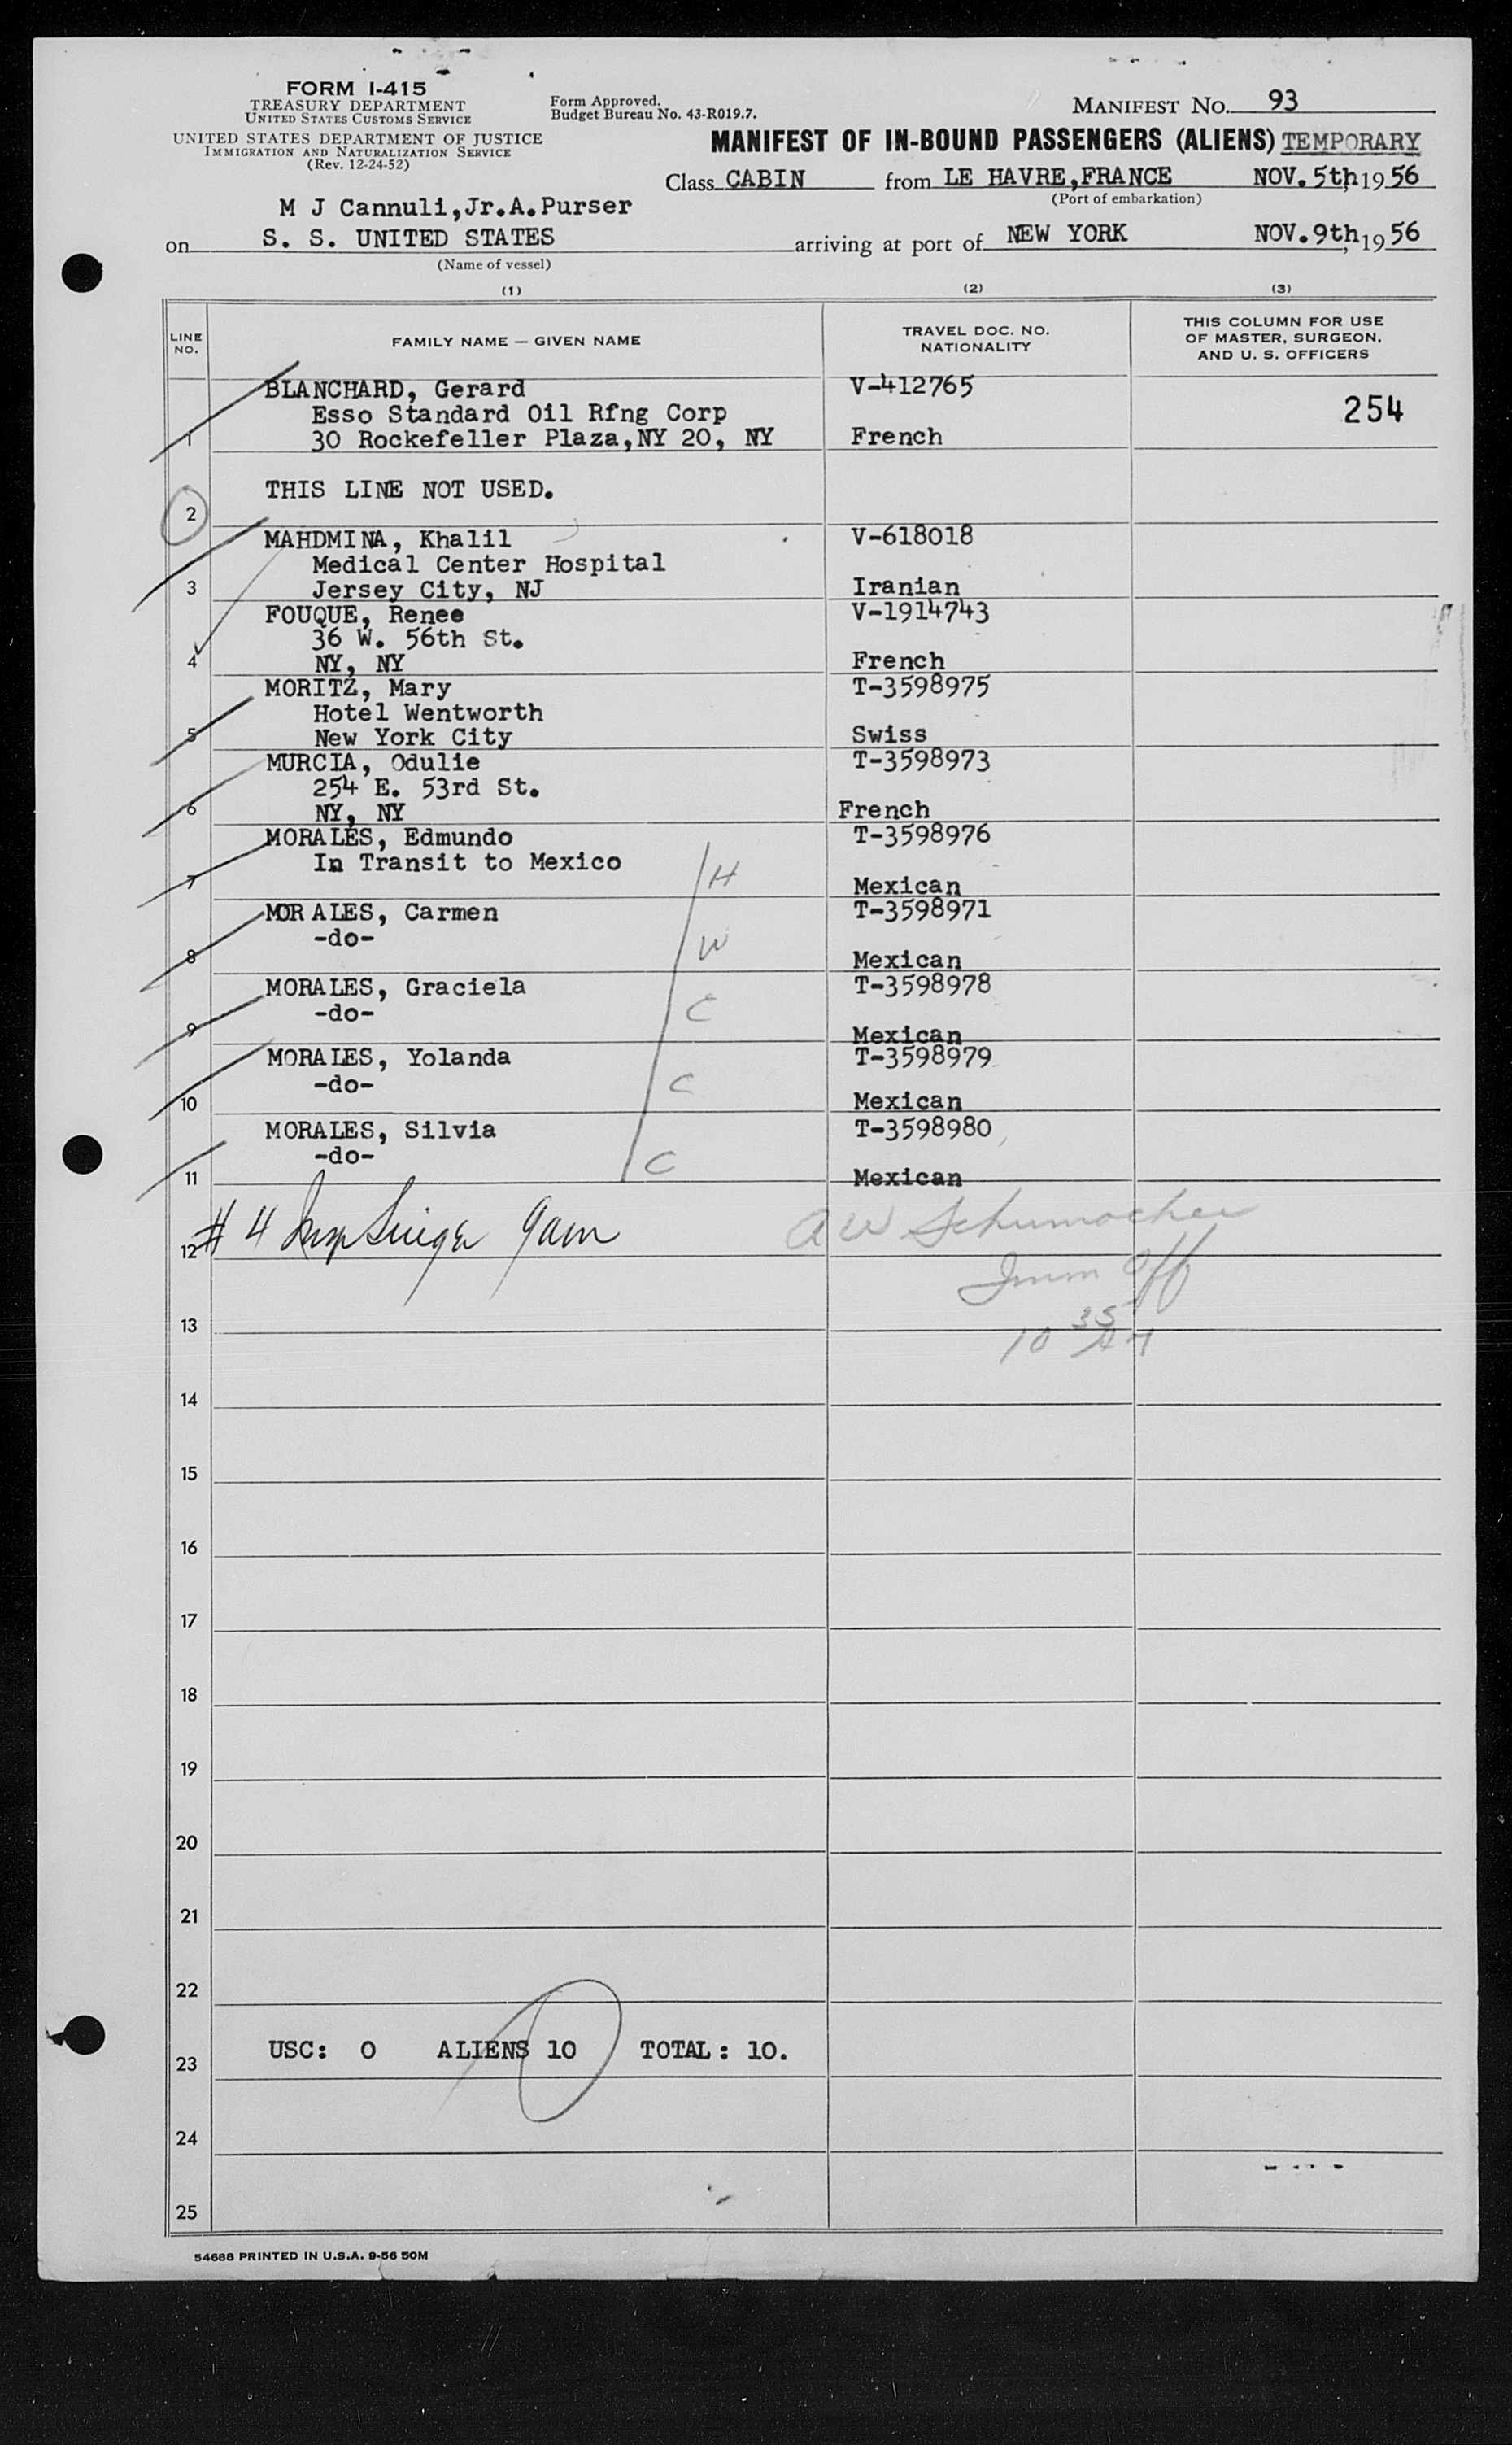 FORM I-415
TREASURY DEPARTMENT
UNITED STATES CUSTOMS SERVICE
UNITED STATES DEPARTMENT OF JUSTICE
IMMIGRATION AND NATURALIZATION SERVICE
(Rev. 12-24-52)
Form Approved.
Budget Bureau No. 43-R019.7.
MANIFEST NO. 93
MANIFEST OF IN-BOUND PASSENGERS (ALIENS) TEMPORARY
Class CABIN from LE HAVRE,FRANCE NOV.5th, 1956
(Port of embarkation)
M J Cannuli,Jr.A.Purser
on S. S. UNITED STATES arriving at port of NEW YORK NOV.9th, 1956
(Name of vessel)
(1) (2) (3)
LINE NO. FAMILY NAME — GIVEN NAME TRAVEL DOC. NO. NATIONALITY THIS COLUMN FOR USE OF MASTER, SURGEON, AND U. S. OFFICERS
BLANCHARD, Gerard V-412765
Esso Standard Oil Rfng Corp 254
1 30 Rockefeller Plaza,NY 20, NY French
THIS LINE NOT USED.
2
MAHDMINA, Khalil V-618018
Medical Center Hospital
3 Jersey City, NJ Iranian
FOUQUE, Renee V-1914743
36 W. 56th St.
4 NY, NY French
MORITZ, Mary T-3598975
Hotel Wentworth
5 New York City Swiss
MURCIA, Odulie T-3598973
254 E. 53rd St.
6 NY, NY French
MORALES, Edmundo T-3598976
In Transit to Mexico
7 H Mexican
MORALES, Carmen T-3598971
-do-
8 W Mexican
MORALES, Graciela T-3598978
-do- C
9 Mexican
MORALES, Yolanda T-3598979
-do- C
10 Mexican
MORALES, Silvia T-3598980
-do- C
11 Mexican
12 # 4 9am A W Schumacher
Imm Off
13
10 35 AM
14
15
16
17
18
19
20
21
22
USC: 0 ALIENS 10 TOTAL: 10.
23
24
25
54688 PRINTED IN U.S.A. 9-56 50M